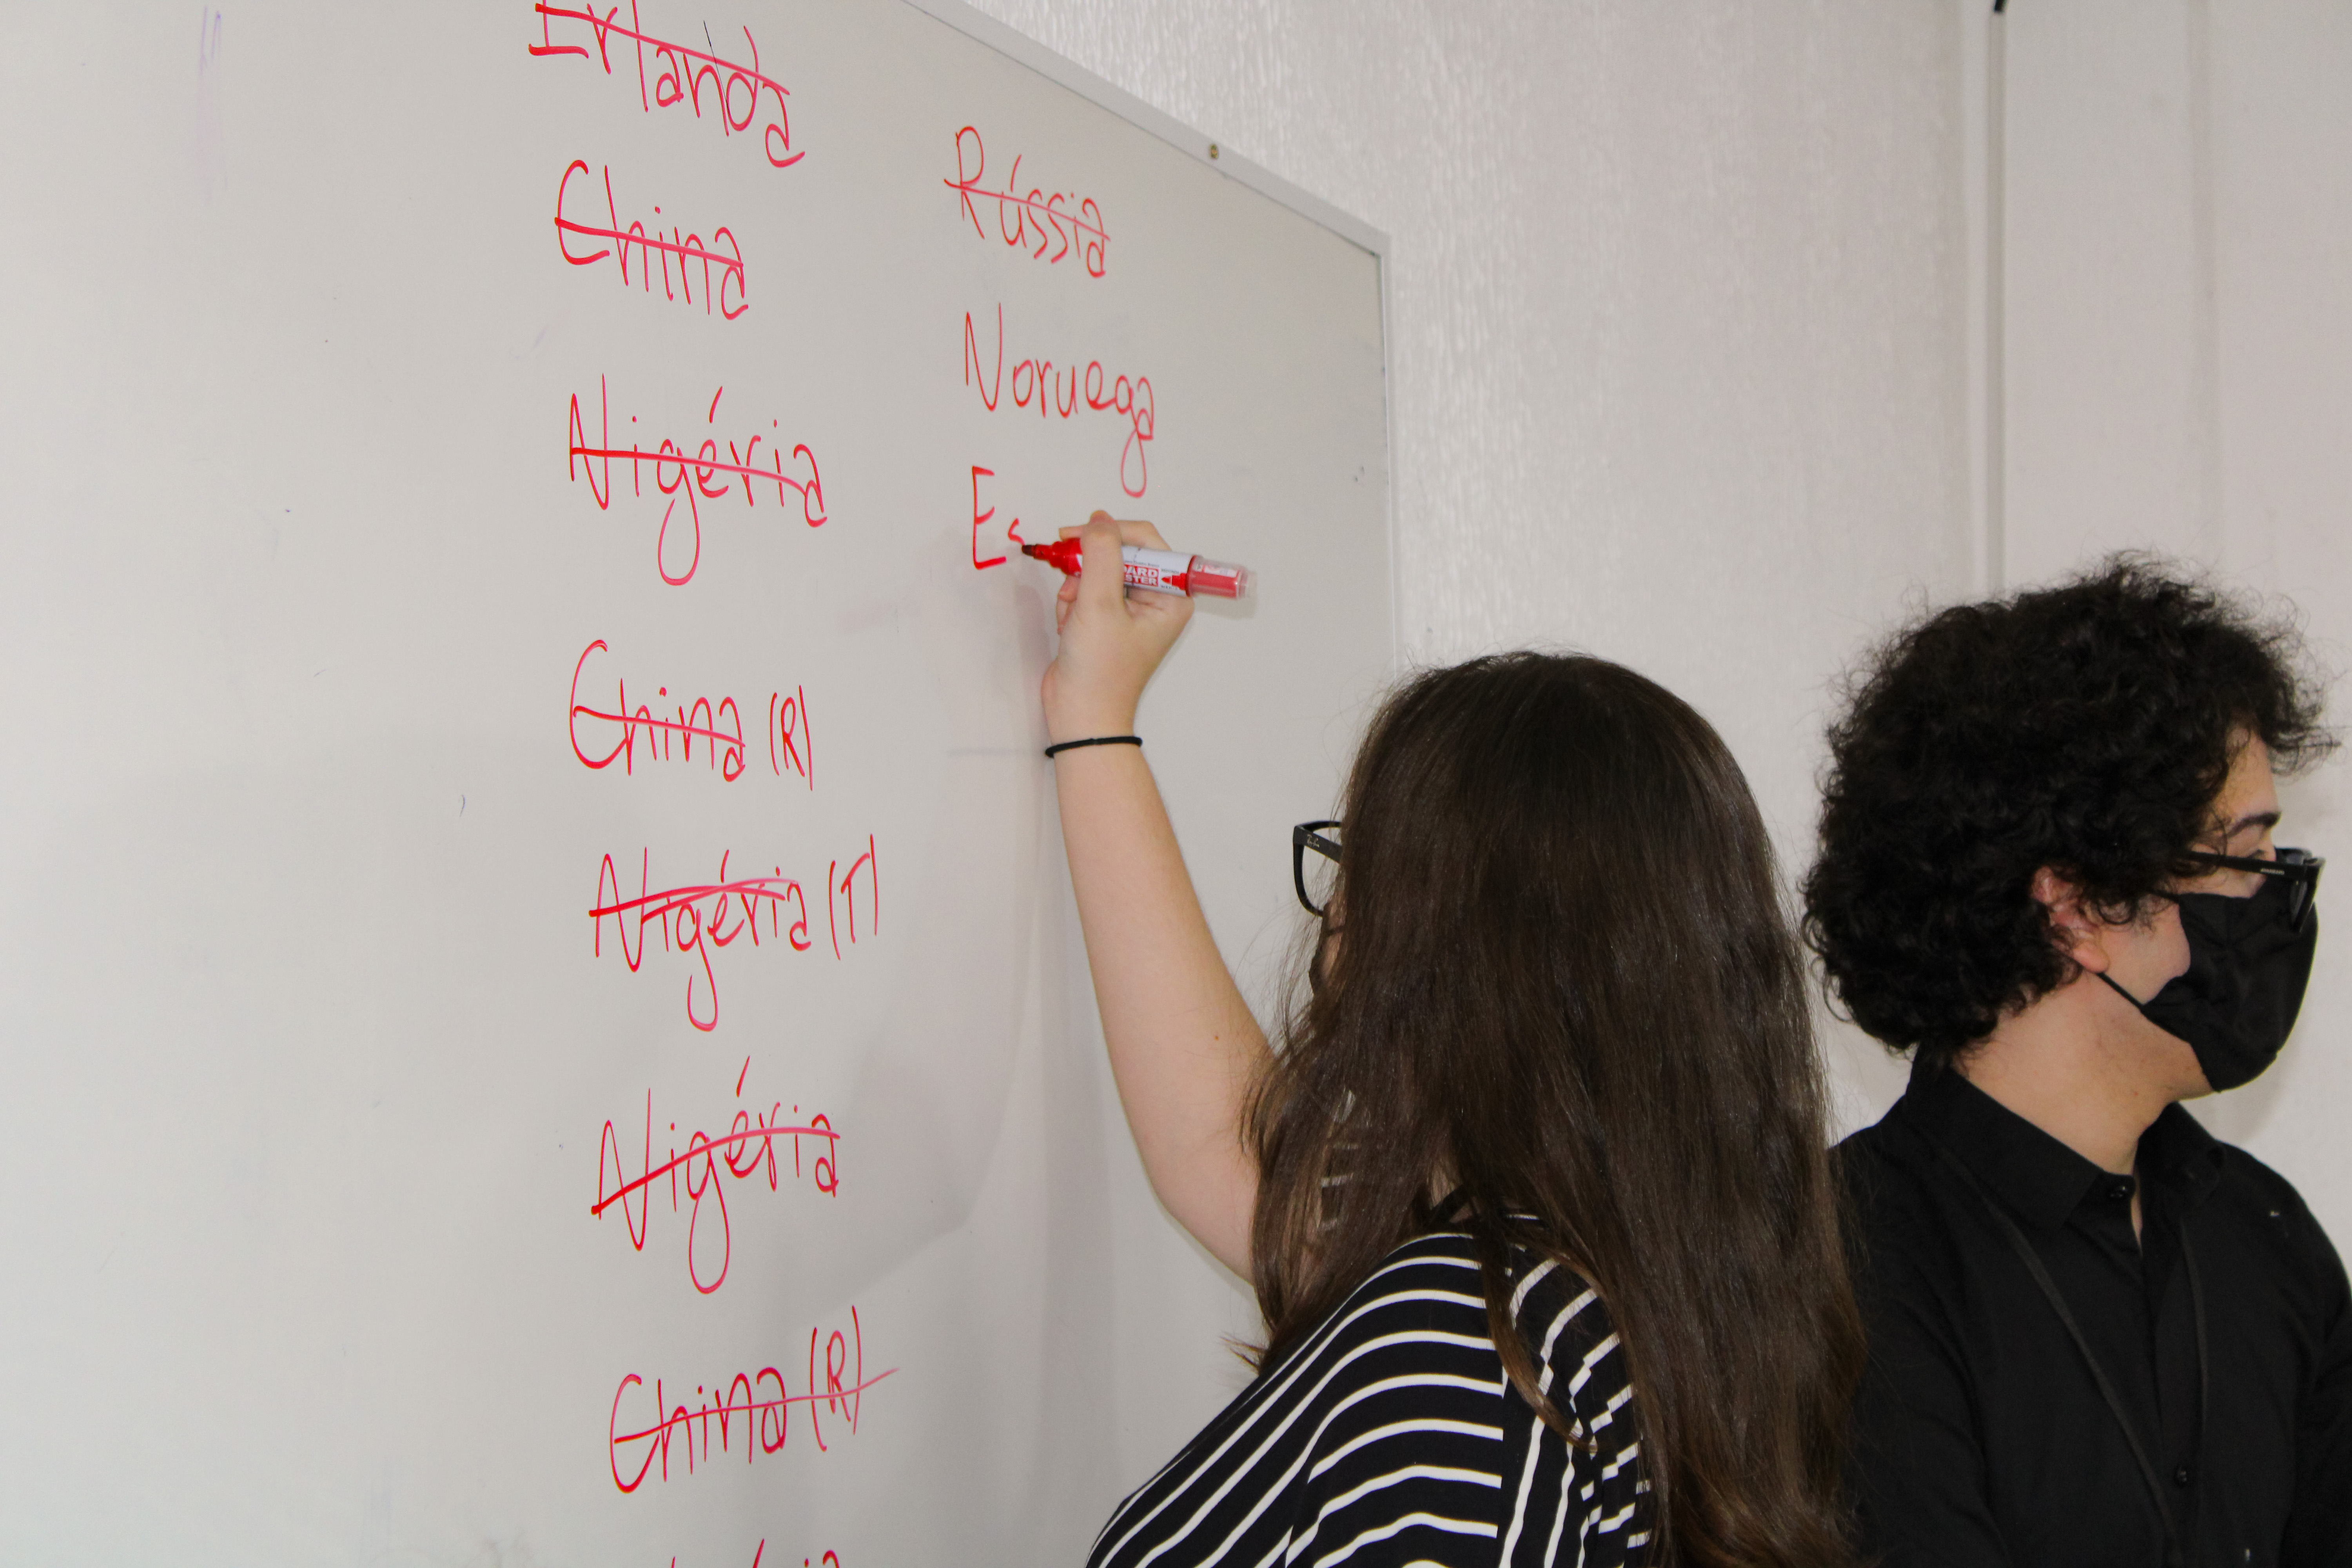 Irlanda
China
Nigéria
China (R)
Nigéria (T)
Nigéria
China (R)
Rússia
Noruega
Es